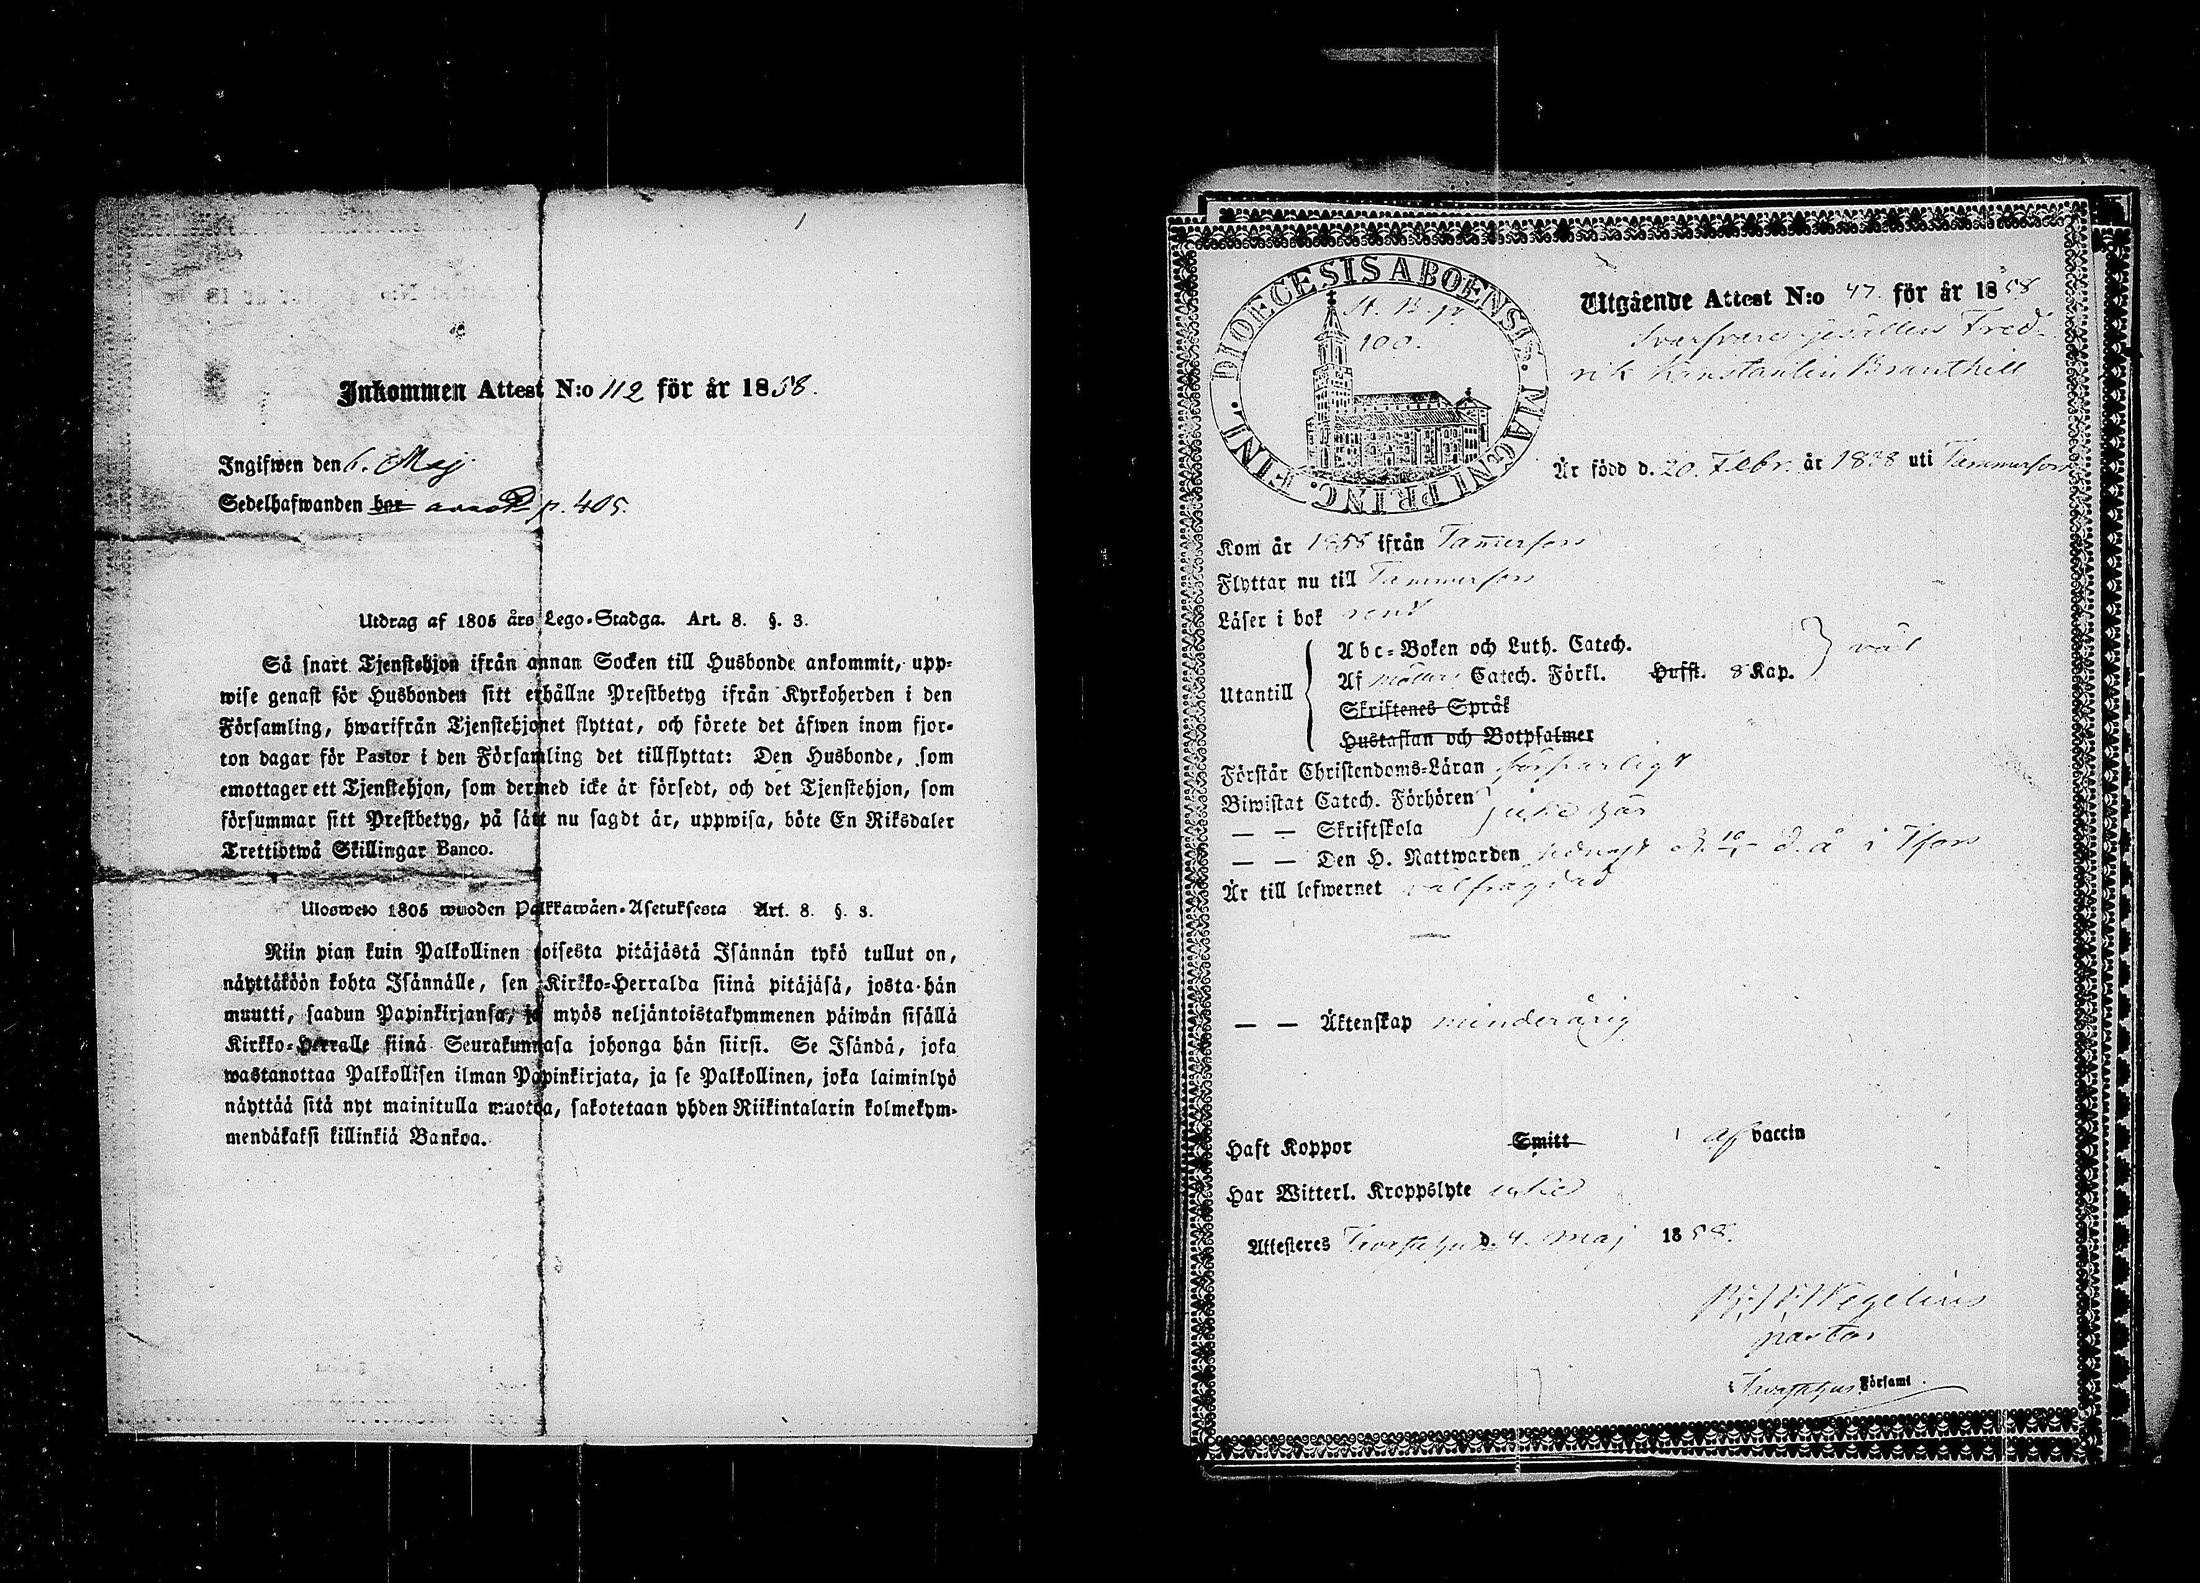 Inkommen Attest N:o 112 för år 1858.
Ingifwen den 6. Maj
Sedelhafwanden bor p. 405.
Utdrag af 1805 års Lego-Stadga. Art. 8. §. 3.
Så snart Tjenstehjon ifrån annan Socken till Husbonde ankommit, upp-
wise genast för Husbonden sitt erhållne Prestbetyg ifrån Kyrkoherden i den
Församling, hwarifrån Tjenstehjonet flyttat, och förete det äfwen inom fjor-
ton dagar för Pastor i den Församling det tillflyttat: Den Husbonde, som
emottager ett Tjenstehjon, som dermed icke är försedt, och det Tjenstehjon, som
försummar sitt Prestbetyg, på sätt nu sagdt är, uppwisa, böte En Riksdaler
Trettiotwå Skillingar Banco.
Ulosweto 1805 wuoden Palkkawäen-Asetuksesta Art. 8. §. 3.
Niin pian kuin Palkollinen toisesta pitäjästä Isännän tykö tullut on,
näyttäköön kohta Isännälle, sen Kirkko-Herralda siinä pitäjäsä, josta hän
muutti, saadun Papinkirjansa, ja myös neljäntoistakymmenen päiwän sisällä
Kirkko-Herralle siinä Seurakunnasa johonga hän siirsi. Se Isändä, joka
wastanottaa Palkollisen ilman Papinkirjata, ja se Palkollinen, joka laiminlyö
näyttää sitä nyt mainitulla muotoa, sakotetaan yhden Riikintalarin kolmekym-
mendäkaksi killinkiä Bankoa.
DIOECESIS ABOENSIS. MAGNI PRINC. FINL.
100.
Utgående Attest N:o 47. för år 1858
Svarfvare gesällen Fred-
rik Konstantin Branthill
Är född d. 20. Febr. år 1838 uti Tammerfors
Kom år 1858 ifrån Tammerfors
Flyttar nu till Tammerfors
Läser i bok rent
Utantill
Abc-Boken och Luth. Catech.
Af Möllers Catech. Förkl. Hufst. 8 Kap. väl
Skriftenes Språk
Hustaflan och Botpsalmer
Förstår Christendoms-Läran försvarligt
Biwistat Catech. Förhören icke här
— — Skriftskola
— — Den H. Nattwarden senast d. d. å. i Tfors
Är till lefwernet välfrägdad
— — Äktenskap minderårig
Haft Koppor Smitt af vaccin
Har Witterl. Kroppslyte icke
Attesteres Tavastehus d. 4. Maj 1858.
Wegelius
pastor
i Tavastehus Församl.